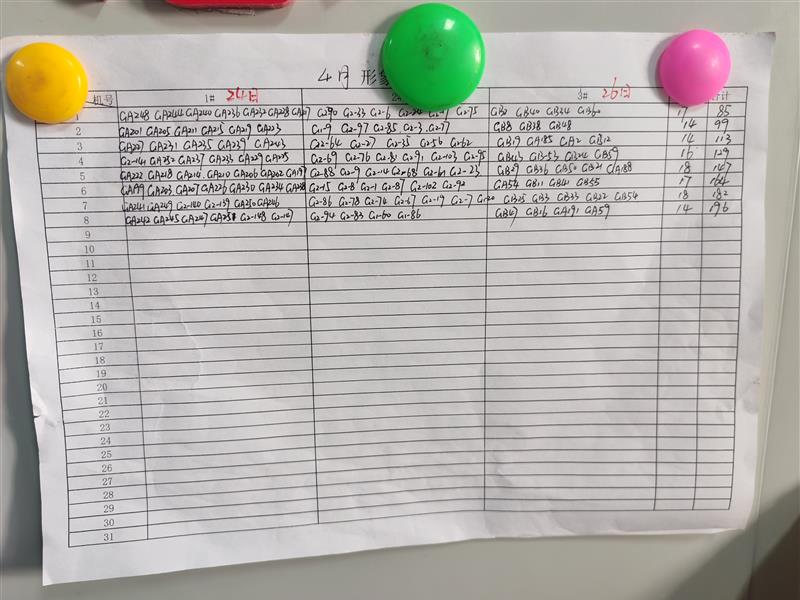 4月 形
机号 1# 24日 3# 26日 计
1 GA248 GA244 GA240 GA236 GA232 GA228 G2-33 G2-6 G2-75 GB2 GB40 GB34 GB36 17 85
2 GA201 GA205 GA211 GA215 GA219 GA223 G1-9 G2-97 G2-85 G2-3 G2-77 GB8 GB38 GB48 14 99
3 GA227 GA231 GA235 GA239 GA243 G2-64 G2-27 G2-35 G2-56 G2-62 GB19 GA185 GA2 GB12 14 113
4 G2-141 GA252 GA237 GA233 GA229 GA225 G2-69 G2-76 G2-82 G2-91 G2-103 G2-95 GB43 GB-53 GB24 GB59 16 129
5 GA222 GA218 GA214 GA210 GA206 GA202 GA197 G2-88 G2-9 G2-14 G2-68 G2-61 G2-23 GB29 GB36 GB50 GB21 GA188 18 147
6 GA199 GA203 GA207 GA226 GA230 GA234 GA238 G2-15 G2-8 G2-1 G2-87 G2-102 G2-92 GA54 GB11 GB41 GB55 17 164
7 GA241 GA249 G2-140 G2-139 GA250 GA246 G2-86 G2-78 G2-74 G2-67 G2-19 G2-7 G1-20 GB25 GB3 GB33 GB22 GB54 18 182
8 GA242 GA245 GA247 G2-148 G2-147 G2-94 G2-83 G1-60 G1-86 GB47 GB16 GA191 GA59 14 196
9
10
11
12
13
14
15
16
17
18
19
20
21
22
23
24
25
26
27
28
29
30
31